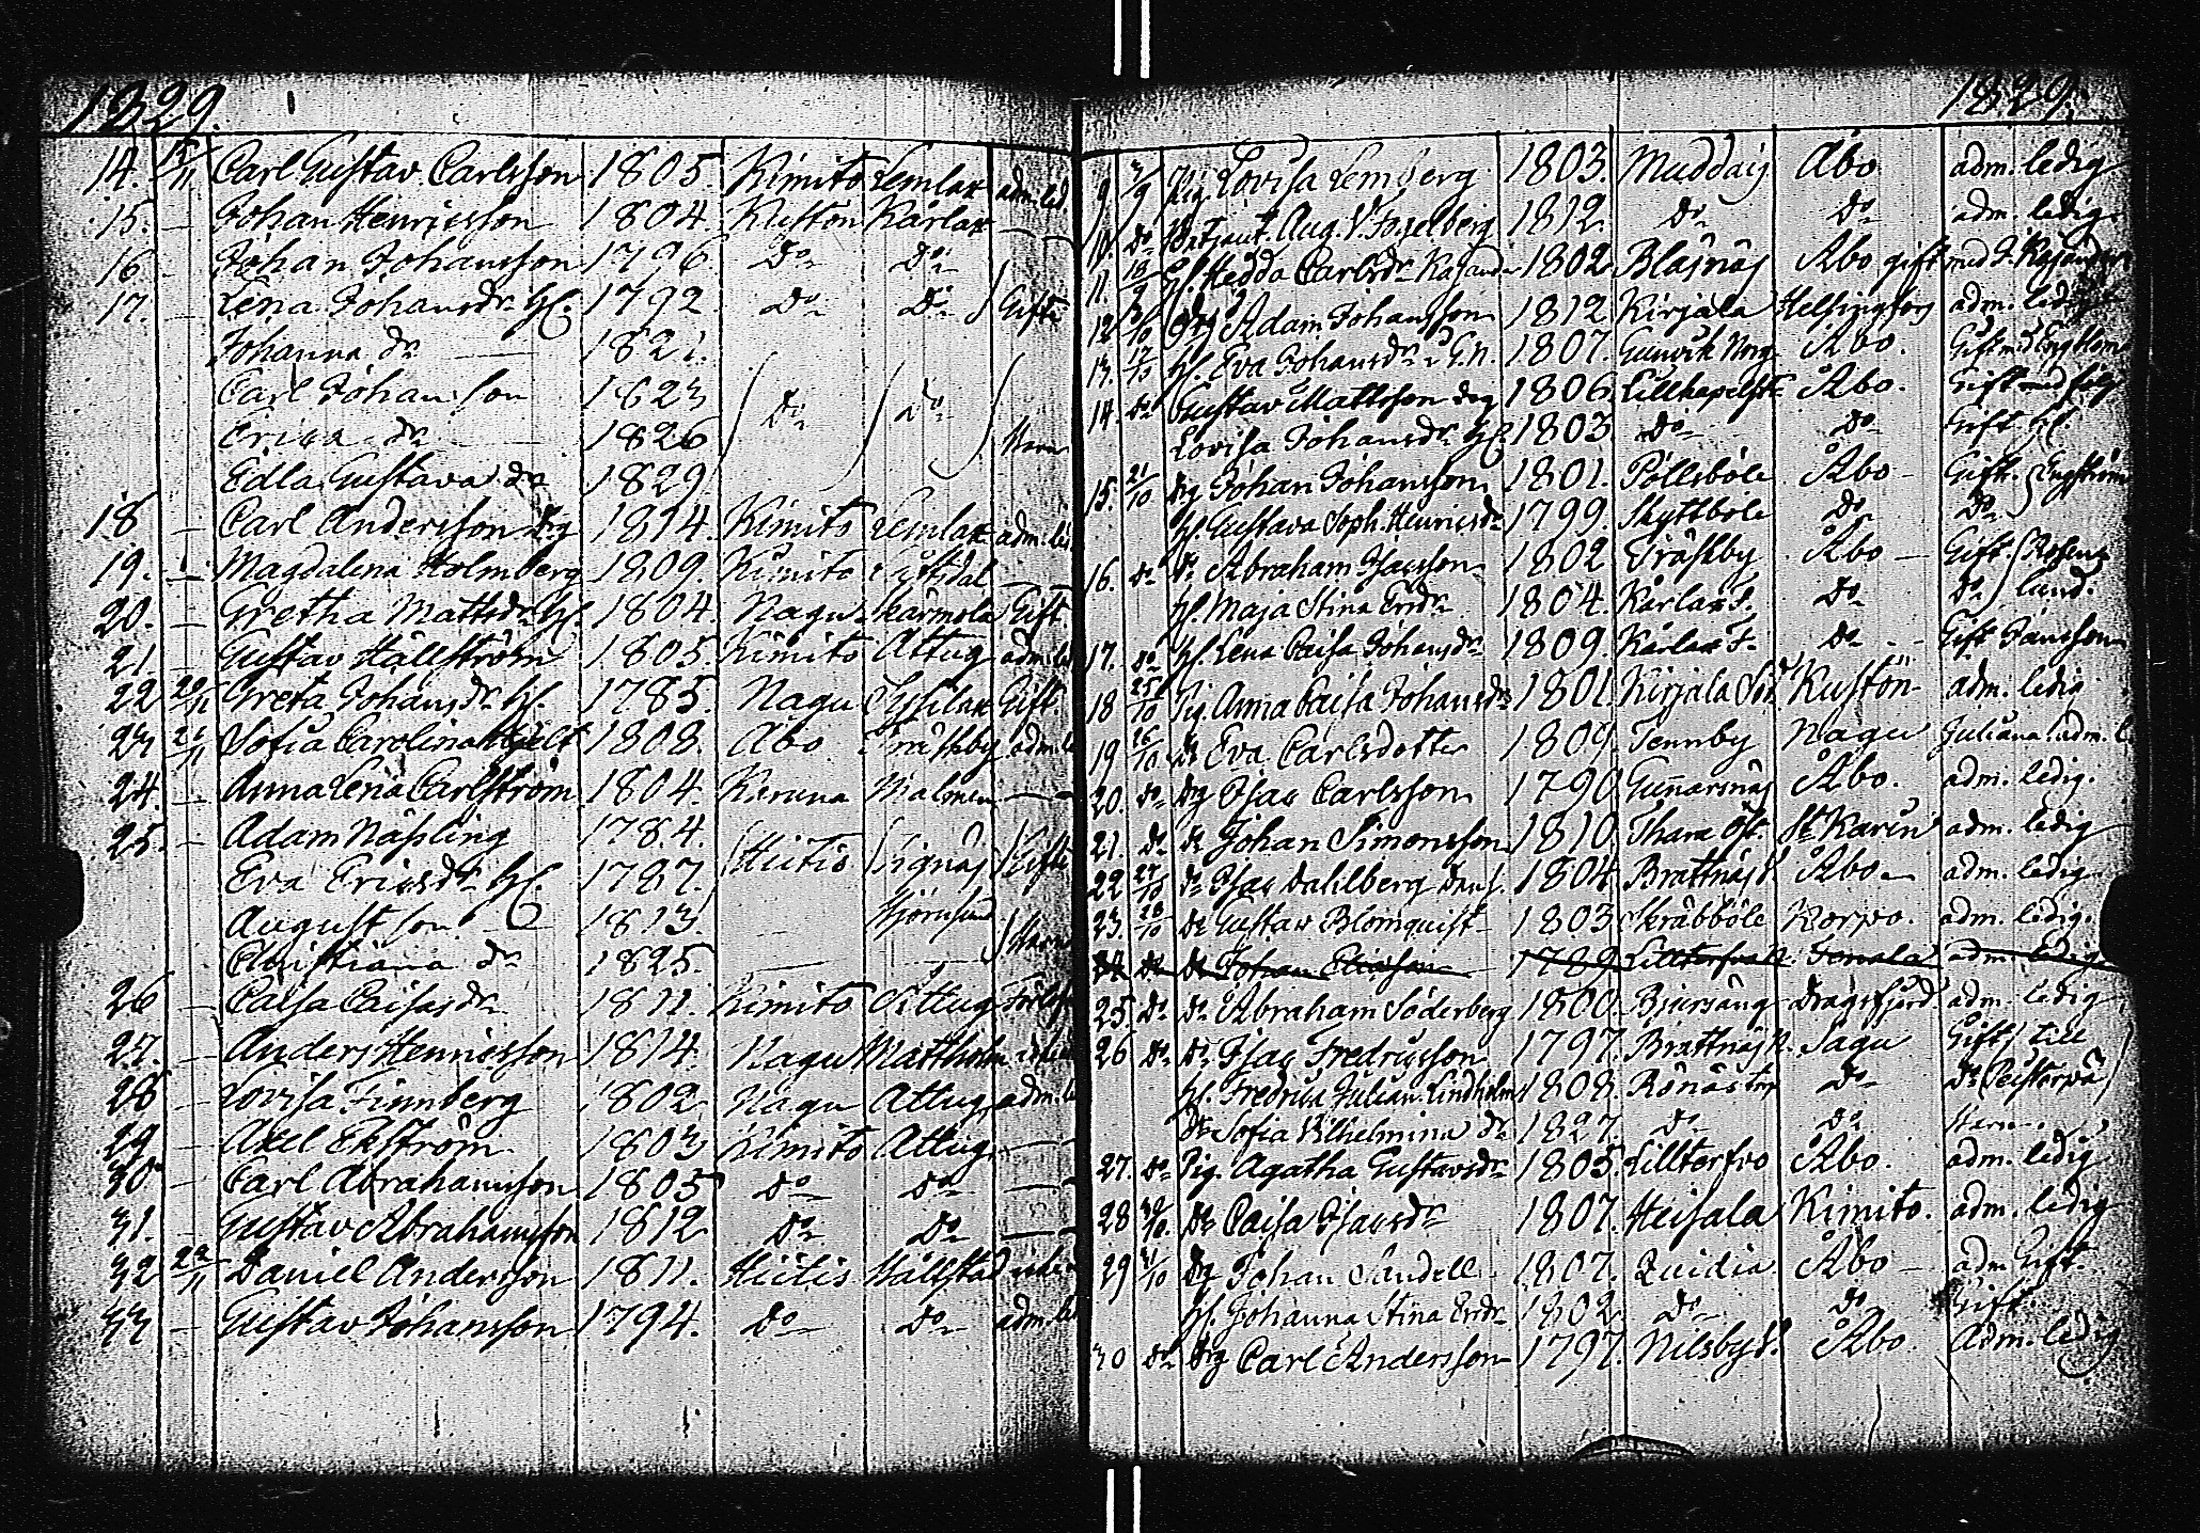 1829.
14. 12/11 Carl Gustav Carlsson 1805. Kimito Lemlax adm. led.
15. — Johan Henricsson 1804. Kustön Kårlax —
16 — Johan Johansson 1796. Do Do
17. — Lena Johansdr H. 1792 Do Do Gifte
Johanna dr 1821.
Carl Johan son 1823 Do Do
Erica dr 1826 Barn
Edla Gustava dr 1829
18 — Carl Andersson Drg 1814. Kimito Lemlax adm. led.
19. — Magdalena Holmberg 1809. Kimito —
20. — Gretha Mattsdr H. 1804. Nagu Kärmola Gift
21 — Gustav Hällström 1805. Kimito Attug adm. led
22 20/11 Greta Johansdr H. 1785. Nagu Gift
23 21/11 Sofia Carolina Hjelt 1808. Åbo Träskby adm. le
24. — Anna Lena Carlström 1804. Karuna Malmen —
25. — Adam Näsling 1784. Hitis Gifte
Eva Ericsdr H. 1787.
August son 1813.
Christiana dr 1825. — Barn
26 — Caisa Caisasdr 1811. Kimito Attug
27. — Anders Henricsson 1814. Nagu Mattholm
28 — Lovisa Finnberg 1802 Nagu Attug adm. le
29 — Axel Ekström 1803 Kimito Attug —
30 — Carl Abrahamsson 1805 Do Do —
31. — Gustav Abrahamsson 1812 Do Do —
32 22/11 Daniel Andersson 1811. Hitis Hällstad
33 — Gustav Johansson 1794. Do Do adm. le
1829.
9 3/9 Pig. Lovisa Lemberg 1803. Muddais Åbo adm. ledig
10 Do Aug. V. Fogelberg 1812 Do Do adm. ledig
11. 18/9 H. Hedda Carlsdr Kajander 1802. Blåsnäs Åbo gift med J. Kajander
12 3/10 Drg Adam Johansson 1812 Kirjala Helsingfors adm. ledig
13. 12/10 H. Eva Johansdr 1807. Gunvik Åbo. Gift med
14. Do Gustav Mattsson Drg 1806. Lillkapelstr. Åbo. Gift med följ
Lovisa Johansdr H. 1803 Do Do Gift H.
15. 21/10 Drg Johan Johansson 1801. Pollsböle Åbo Gift. Engström
H. Gustava Soph. Henricsdr 1799. Skyttböle Do Do
16. Do Do Abraham Isacsson 1802 Träskby Åbo — Gift. Rosen
H. Maja Stina Ersdr 1804. Kårlax Do Do lund.
17. Do H. Lena Caisa Johansdr 1809. Kårlax Do Gift Jansson
18 25/10 Pig. Anna Caisa Johansdr 1801. Kirjala Kustön adm. ledig
19 26/10 Do Eva Carlsdotter 1809. Tennby Nagu Juliana. adm. l
20. Do Drg Isac Carlsson 1790. Gunnarsnäs Åbo. adm. ledig.
21. Do Do Johan Simonsson 1810. St Karin adm. ledig
22 27/10 Do Isac Dahlberg 1804. Brattnäs Åbo adm. ledig
23. 28/10 Do Gustav Blomquist 1803. Skräbböle Korpo. adm. ledig.
24 Do Do Johan Eliasson 1789 Tenala adm. ledig
25 Do Do Abraham Söderberg 1800. Bjursäng Dragsfjärd adm. ledig
26 Do Do Isac Fredricsson 1797. Brattnäs Sagu Gift till
H. Fredrica Julian. Lindholm 1808. Rönäs Do Do
Dr Sofia Vilhelmina dr 1827. Do Do Barn
27. Do Pig. Agatha Gustavsdr 1805. Lilltorfvo Åbo. adm. ledig
28 30/10 Do Caisa Isacsdr 1807. Heisala Kimito. adm. ledig
29 31/10 Drg Johan Sandell 1807. Qvidia Åbo — adm. Gift.
H. Johanna Stina Ersdr 1802 Do Do Gift.
30 Do Drg Carl Andersson 1797. Nilsby Åbo. Adm. ledig